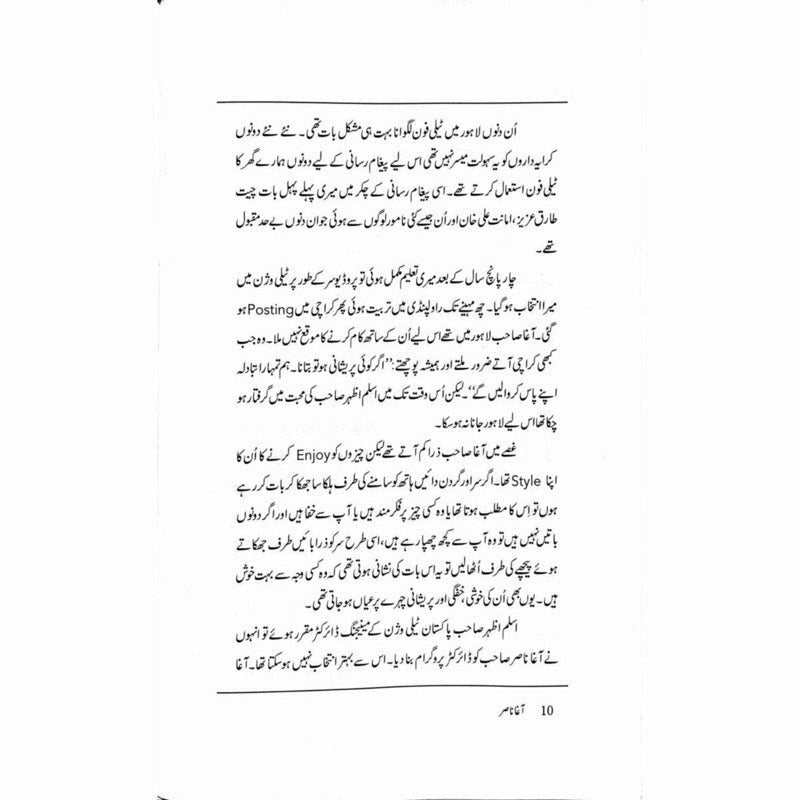 اُن دنوں لاہور میں ٹیلی فون لگوانا بہت ہی مشکل بات تھی۔ نئے نئے دونوں
کرایہ داروں کو یہ سہولت میسر نہیں تھی اس لیے پیغام رسانی کے لیے دونوں ہمارے گھر کا
ٹیلی فون استعمال کرتے تھے۔ اسی پیغام رسانی کے چکر میں میری پہلے پہل بات چیت
طارق عزیز، امانت علی خان اور اُن جیسے کئی نامور لوگوں سے ہوئی جو ان دنوں بے حد مقبول
تھے۔
چار پانچ سال کے بعد میری تعلیم مکمل ہوئی تو پروڈیوسر کے طور پر ٹیلی وژن میں
میرا انتخاب ہو گیا۔ چھ مہینے تک راولپنڈی میں تربیت ہوئی پھر کراچی میں Posting ہو
گئی۔ آغا صاحب لاہور میں تھے اس لیے اُن کے ساتھ کام کرنے کا موقع نہیں ملا۔ وہ جب
کبھی کراچی آتے ضرور ملتے اور ہمیشہ پوچھتے: ’’اگر کوئی پریشانی ہو تو بتانا۔ ہم تمہارا تبادلہ
اپنے پاس کروالیں گے‘‘۔ لیکن اُس وقت تک میں اسلم اظہر صاحب کی محبت میں گرفتار ہو
چکا تھا اس لیے لاہور جانا نہ ہو سکا۔
غصے میں آغا صاحب ذرا کم آتے تھے لیکن چیزوں کو Enjoy کرنے کا اُن کا
اپنا Style تھا۔ اگر سر اور گردن دائیں ہاتھ کو سامنے کی طرف ہلکا سا جھکا کر بات کر رہے
ہوں تو اِس کا مطلب ہوتا تھا یا وہ کسی چیز پر فکر مند ہیں یا آپ سے خفا ہیں اور اگر دونوں
باتیں نہیں ہیں تو وہ آپ سے کچھ چھپا رہے ہیں، اسی طرح سر کو ذرا بائیں طرف جھکاتے
ہوئے پیچھے کی طرف اُٹھالیں تو یہ اس بات کی نشانی ہوتی تھی کہ وہ کسی وجہ سے بہت خوش
ہیں۔ یوں بھی اُن کی خوشی، خفگی اور پریشانی چہرے پر عیاں ہو جاتی تھی۔
اسلم اظہر صاحب پاکستان ٹیلی وژن کے مینیجنگ ڈائرکٹر مقرر ہوئے تو انہوں
نے آغا ناصر صاحب کو ڈائرکٹر پروگرام بنا دیا۔ اس سے بہتر انتخاب نہیں ہو سکتا تھا۔ آغا
10 آغا ناصر